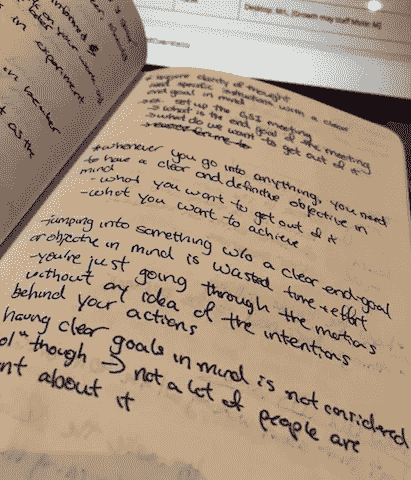 Desktop: M/L (Growth may stuff Mobile: M)
in experiment
in beaker
as the
require clarity of thought
and specific instructions with a clear
end goal in mind
set up the GSI meeting
→ what is the end goal of the meeting
→ what do we want to get out of it
*whenever you go into anything, you need
to have a clear and definitive objective in
mind
- what you want to get out of it
- what you want to achieve
-jumping into something w/o a clear end-goal
or objective in mind is wasted time & effort
-you're just going through the motions
without any idea of the intentions
behind your actions
having clear goals in mind is not considered
" though → not a lot of people are
about it